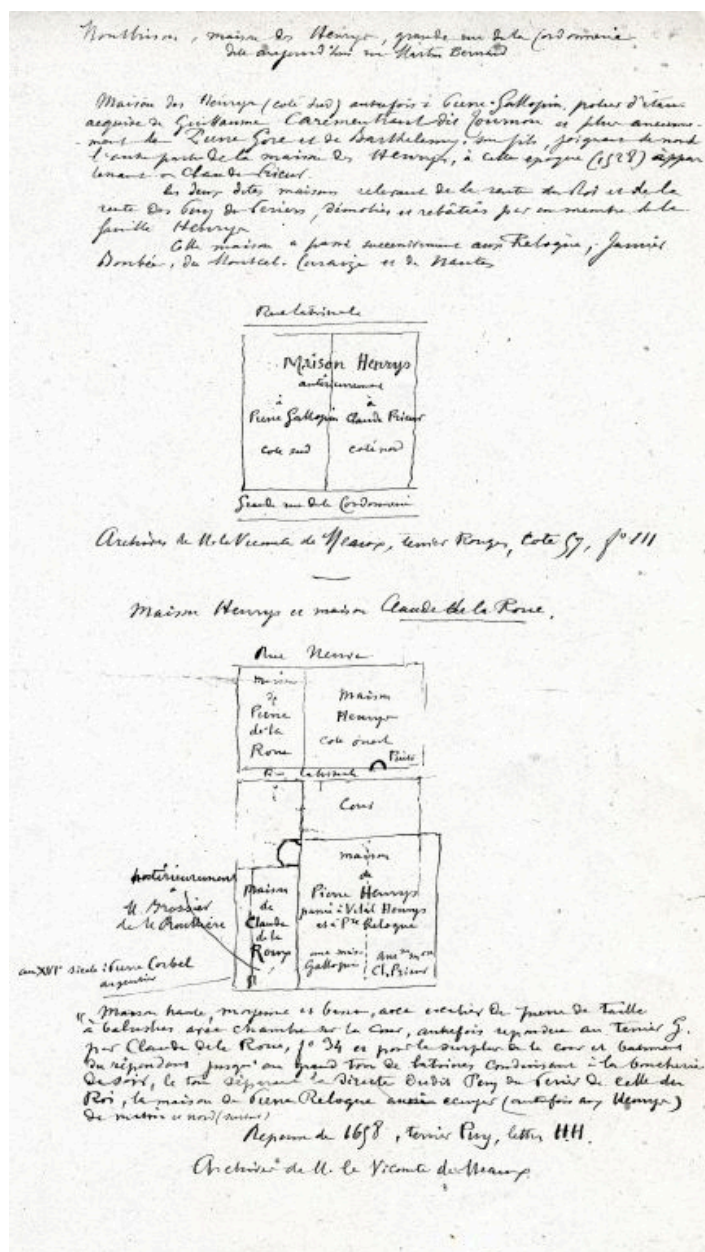 Montbrison, maison des Henrys, grande rue de la Cordonnerie
dite aujourd'hui rue Martin Bernard
Maison des Henrys (coté sud) autrefois à Pierre Gallopin, potier d'étain
acquise de Guillaume Carementrant dit Journon et plus ancienne-
ment de Pierre Gore et de Barthelemy, son fils, joignant de nord
l'autre partie de la maison des Henrys, à cette époque (1528) appar
tenant à Claude Prieur.
Les deux dites maisons relevant de la rente du Roi et de la
rente des Puy du Périer, démolies et rebâties par un membre de la
famille Henrys
Cette maison a passé successivement aux Relogue, Janvier
du Montcel, Curaize et de Nantes
Rue latrinale
Maison Henrys
antérieurement
à à
Pierre Gallopin Claude Prieur
coté sud coté nord
Grande rue de la Cordonnerie
Archives de M. le Vicomte de Meaux, terrier Rouge, Cote 57, f° III
Maison Henrys et maison Claude de la Roue.
Rue Neuve
maison
de
Pierre
de la
Roue
Maison
Henrys
Puits
Rue latrinale
Cour
maison
de
Pierre Henrys
passé à Vital Henrys
et à Pre Relogue
anc. mais.
Gallopin
anc. mon
Cl. Prieur
maison
de
Claude
de la
Roue
postérieurement
à
M. Brossier
de la Rouillière
au XVIe siècle : Pierre Corbel
argentier
"Maison haute, moyenne et basse, avec escalier de pierre de taille
à balustres avec chambre sur la Cour, autrefois répondue au Terrier G.
par Claude de la Roue, f° 34 et pour le surplus de la cour et basment
du répondant jusqu'au grand tou de latrines conduisant à la boucherie
de soir, le tou séparant la Directe dudit Puy du Périer de celle du
Roi, la maison de Pierre Relogue écuyer (autrefois aux Henrys)
de matin et nord
Reponse de 1658, terrier Puy, lettre HH.
Archives de M. le Vicomte de Meaux